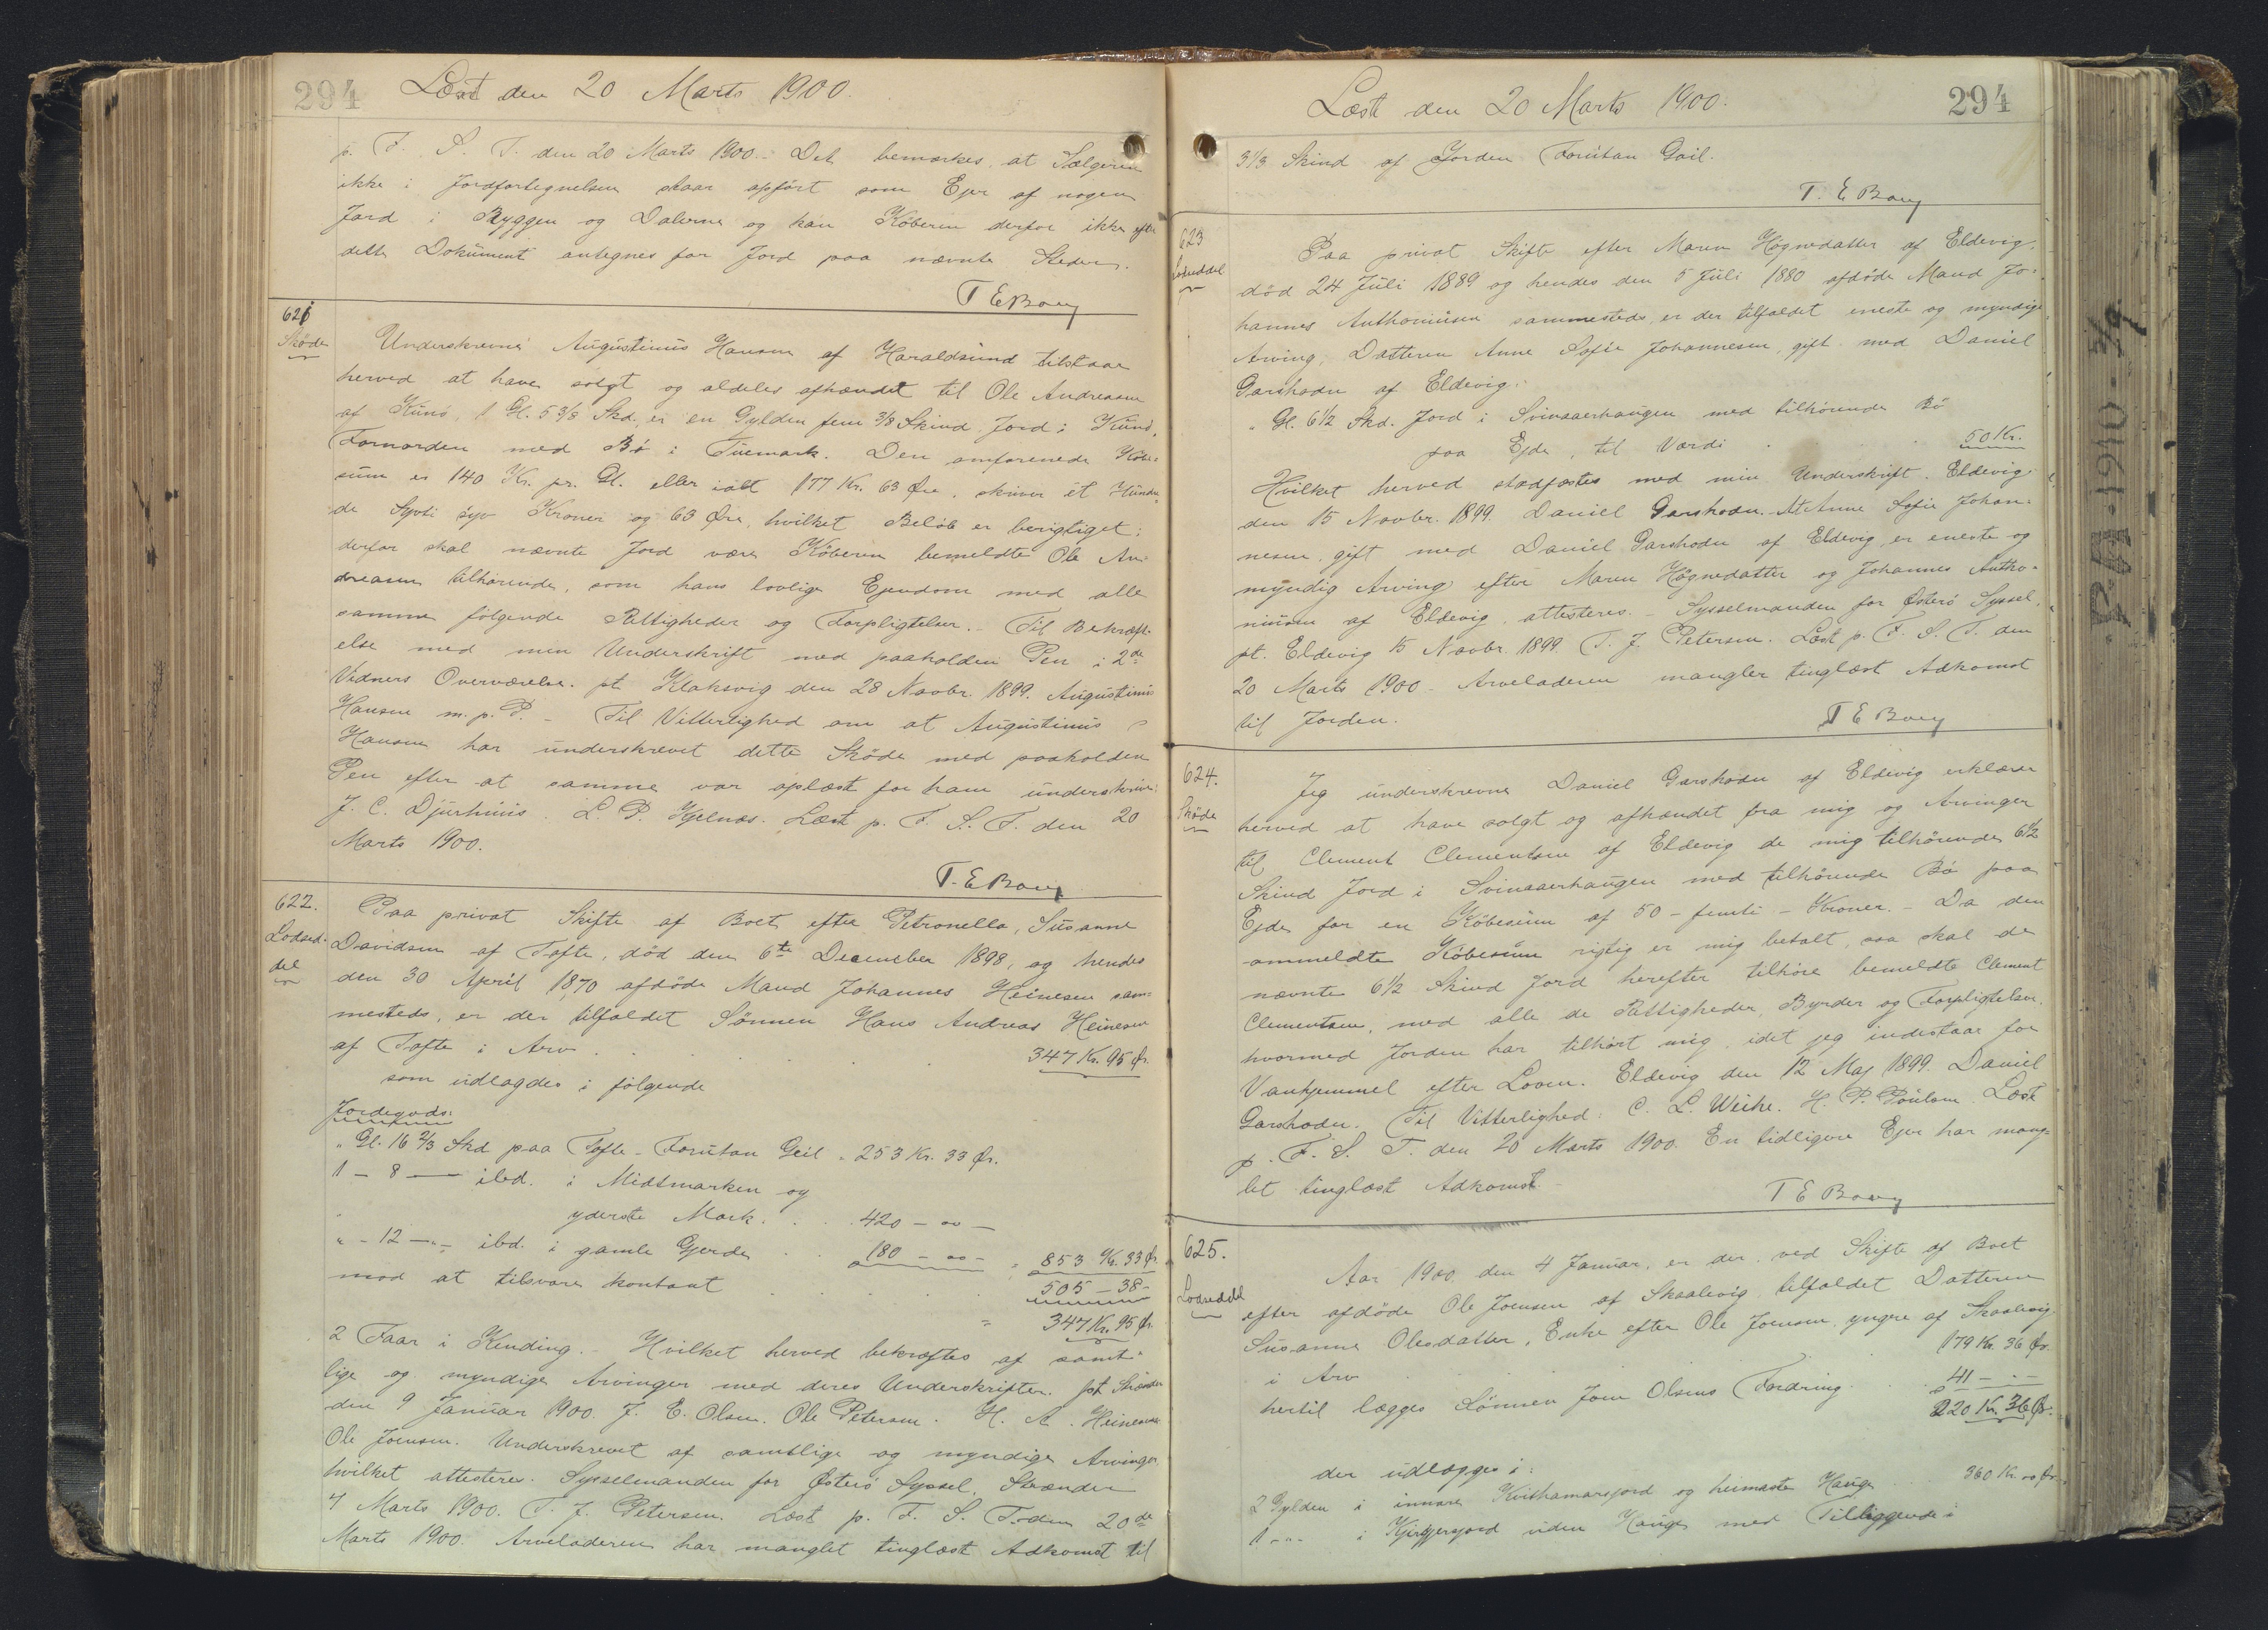 294 Læst den 20 Marts 1900.
p. F. S. T. den 20 Marts 1900. - Det bemærkes, at Sælgeren
ikke i Jordfortegnelsen staar opført som Ejer af nogen
Jord i Byggen og Dalerne og kan Køberen derfor ikke efter
dette Dokument antegnes for Jord paa nævnte Steder.
T E Bary
621
Skøde
Underskrevne Augustinus Hansen af Haraldsund tilstaar
herved at have solgt og aldeles afhændet til Ole Andreasen
af Kunø, 1 Gl. 5 3/8 Skd. er en Gylden fem 3/8 Skind Jord i Kunø,
Fornorden med Bø i Tuemark. Den omforenede Købe-
sum er 140 Kr. pr. Gl. eller ialt 177 Kr. 63 Øre, skriver èt Hundre-
de Syvti syv Kroner og 63 Øre, hvilket Beløb er berigtiget;
derfor skal nævnte Jord være Køberen bemeldte Ole An-
dreasen tilhørende, som hans lovlige Ejendom med alle
samme følgende Rettigheder og Forpligtelser. - Til Bekræft-
else med min Underskrift med paaholden Pen i 2de
Vidners Overværelse. pt. Klaksvig den 28 Novbr. 1899. Augustinus
Hansen m. p. P. - Til Vitterlighed om at Augustinus
Hansen har underskrevet dette Skøde med paaholden
Pen efter at samme var oplæst for ham underskriver:
J. C. Djurhuus. L. P. Kjelnæs. Læst p. F. S. T. den 20
Marts 1900.
T. E Bary
622.
Lodsed-
del
Paa privat Skifte af Boet efter Petronella, Susanne
Davidsen af Tofte, død den 6te December 1898, og hendes
den 30 April 1870 afdøde Mand Johannes Heinesen sam-
mesteds, er der tilfaldet Sønnen Hans Andreas Heinesen
af Tofte i Arv . . . . 347 Kr. 95 Ør.
som udlagdes i følgende
Jordegods:
" Gl. 16 2/3 Skd paa Tofte - Forutan Geil = 253 Kr. 33 Ør.
1 - 8 — ibd. i Midtmarken og
yderste Mark . . . 420 - oo -
" - 12 -"- ibd. i gamle Gjerde . . 180 - oo - = 853 Kr. 33 Ør.
mod at tilsvare kontant . . . . 505 - 38 -
= 347 Kr. 95 Ør.
2 Faar i Kending. - Hvilket herved bekræftes af samt-
lige og myndige Arvinger med deres Underskrifter. pt Strænder
den 9 Januar 1900. J. E. Olsen. Ole Petersen. H. A. Heinesen.
Ole Joensen. Underskrevet af samtlige og myndige Arvinger
hvilket attesteres. Sysselmanden for Østerø Syssel, Strænder
7 Marts 1900. T. J. Petersen. Læst p. F. S. T. den 20de
Marts 1900. Arveladeren har manglet tinglæst Adkomst til
Læst den 20 Marts 1900. 294
3 1/3 Skind af Jorden Forutan Gail.
T. E Bary
623
Lodseddel
Paa privat Skifte efter Maren Høgnedatter af Eldevig,
død 24 Juli 1889 og hendes den 5 Juli 1880 afdøde Mand Jo-
hannes Anthoniusen sammesteds, er der tilfaldet eneste og myndige
Arving, Datteren Anne Sofie Johannesen, gift med Daniel
Garshodn af Eldevig:
" Gl. 6 1/2 Skd. Jord i Svinaaerhaugen med tilhørende Bø
paa Ejde, til Værdi . . . 50 Kr.
Hvilket herved stadfæstes med min Underskrift. Eldevig
den 15 Novbr. 1899. Daniel Garshodn. At Anne Sofie Johan-
nesen, gift med Daniel Garshodn af Eldevig, er eneste og
myndig Arving efter Maren Høgnedatter og Johannes Antho-
niusen af Eldevig, attesteres. - Sysselmanden for Østerø Syssel,
pt. Eldevig 15 Novbr. 1899. T. J. Petersen. Læst p. F. S. T. den
20 Marts 1900 - Arveladeren mangler tinglæst Adkomst
til Jorden.
T E Bary
624.
Skøde
Jeg underskrevne Daniel Garshodn af Eldevig erklærer
herved at have solgt og afhændet fra mig og Arvinger
til Clement Clementsen af Eldevig de mig tilhørende 6 1/2
Skind Jord i Svinaaerhaugen med tilhørende Bø paa
Ejde for en Købesum af 50 - femti - Kroner. - Da den
ommeldte Købesum rigtig er mig betalt, saa skal de
nævnte 6 1/2 Skind Jord herefter tilhøre bemeldte Clement
Clementsen, med alle de Rettigheder, Byrder og Forpligtelser,
hvormed Jorden har tilhørt mig, idet jeg indestaar for
Vanhjemmel efter Loven. Eldevig den 12 Maj 1899. Daniel
Garshodn. Til Vitterlighed: C. L. Weihe. H. P. Poulsen. Læst
p. F. S. T. den 20 Marts 1900. En tidligere Ejer har mang-
let tinglæst Adkomst.
T E Bary
625.
Lodseddel
Aar 1900, den 4 Januar, er der ved Skifte af Boet
efter afdøde Ole Joensen af Skaalevig tilfaldet Datteren
Susanne Olesdatter, Enke efter Ole Joensen yngre af Skaalevig
i Arv . . . . 179 Kr. 36 Ør.
hertil lægges Sønnen Joen Olsens Fordring . . 41 - " -
220 Kr. 36 Ør.
der udlægges i:
2 Gylden i innare Kvithamarsjord og heimaste Hauge 360 Kr. oo Ør.
1 -"- i Kjirkjersjord uden Hauge med Tilliggende i